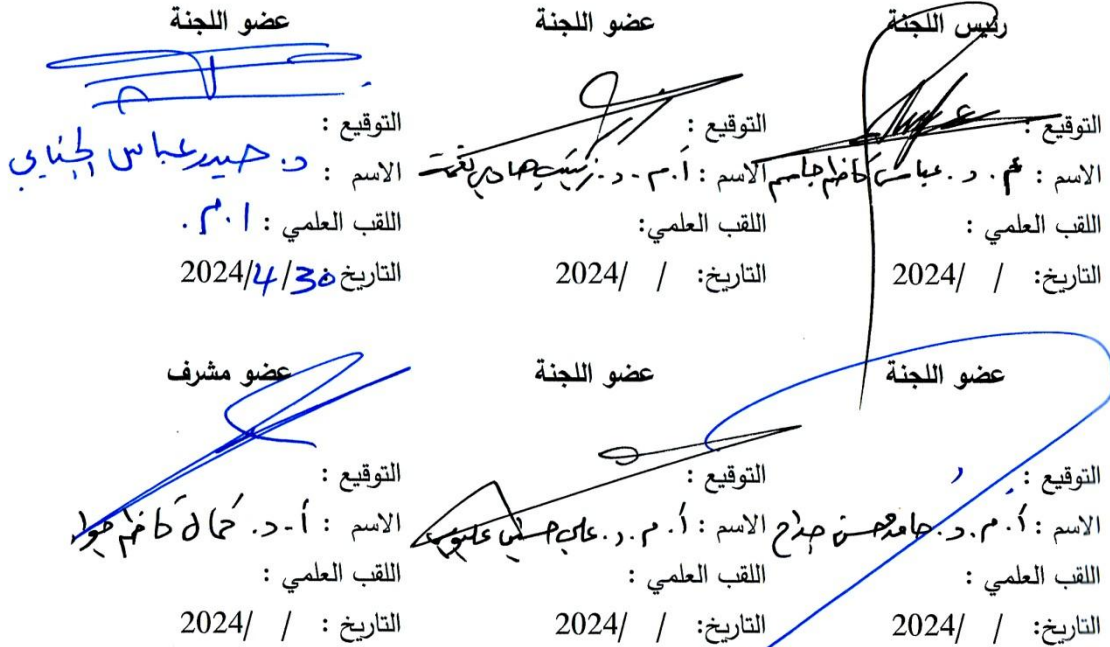 رئيس اللجنة
التوقيع :
الاسم : د. عباس كاظم جاسم
اللقب العلمي :
التاريخ: / /2024
عضو اللجنة
التوقيع :
الاسم : أ.م.د. زينب هادي نعمت
اللقب العلمي:
التاريخ: / /2024
عضو اللجنة
التوقيع :
الاسم : د. حيدر عباس الجنابي
اللقب العلمي : ا.م.
التاريخ 30/4/2024
عضو اللجنة
التوقيع :
الاسم : أ.م.د. حامد محسن جداح
اللقب العلمي :
التاريخ: / /2024
عضو اللجنة
التوقيع :
الاسم : أ.م.د. علي حسين
اللقب العلمي :
التاريخ: / /2024
عضو مشرف
التوقيع :
الاسم : أ.د. كمال كاظم جواد
اللقب العلمي :
التاريخ : / /2024